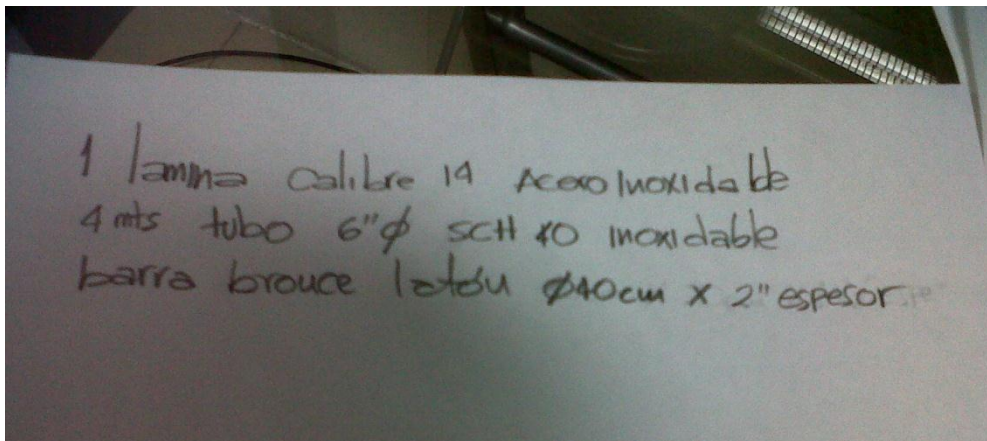 1 lamina calibre 14 Acero Inoxidable
4 mts tubo 6"ø SCH 40 inoxidable
barra brouce latón ø40cm x 2" espesor